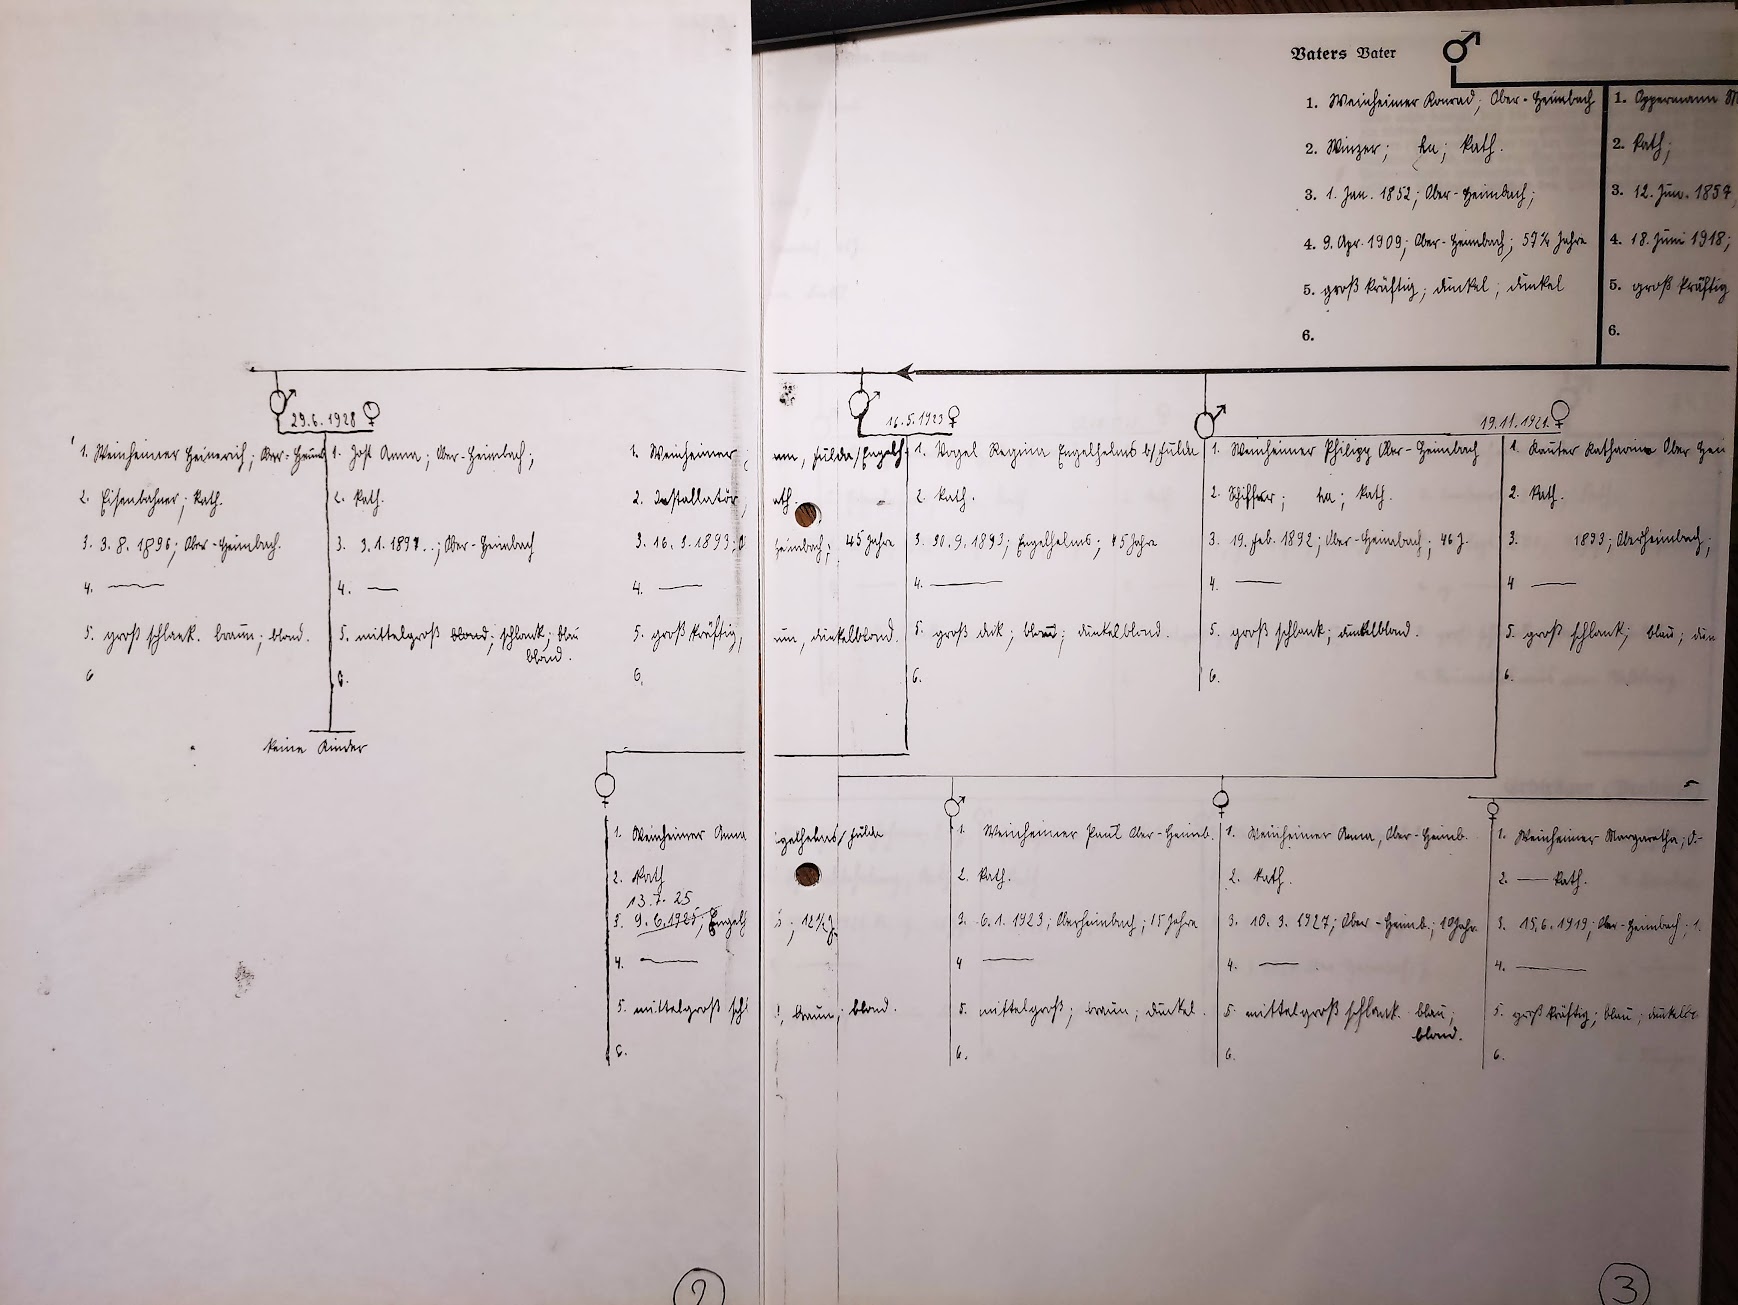 Vaters Vater
1. Weinheimer Konrad; Ober-Heimbach
2. Winzer; ; kath.
3. 1. Jan. 1852; Ober-Heimbach;
4. 9. Apr. 1909; Ober-Heimbach; 57¼ Jahre
5. groß kräftig; dunkel; dunkel
6.
1. Oppermann M
2. kath;
3. 12. Jun. 1854,
4. 18. Juni 1918;
5. groß kräftig
6.
29.6.1928
1. Weinheimer Heinerich; Ober-Heimb
2. Eisenbahner; kath.
3. 3.8.1896; Ober-Heimbach.
4. —
5. groß schlank. braun; blond.
6
1. Jost Anna; Ober-Heimbach;
2. kath.
3. 3.1.1897..; Ober-Heimbach
4. —
5. mittelgroß blond; schlank; blau
blond.
6.
keine Kinder
16.5.1923
1. Weinheimer nn, Fulda/Engelh
2. Installatör, ath.
3. 16.3.1893; O heimbach; 45 Jahre
4. —
5. groß kräftig, un, dunkelblond.
6.
1. Vogel Regina Engelhelms b/Fulda
2. kath.
3. 30.9.1893; Engelhelms; 45 Jahre
4. —
5. groß dick; blau; dunkelblond.
6.
19.11.1921
1. Weinheimer Philipp Ober-Heimbach
2. Schiffer; ; kath.
3. 19. Feb. 1892; Ober-Heimbach; 46 J.
4. —
5. groß schlank; dunkelblond.
6.
1. Kauter Katharina Ober Hei
2. kath.
3. 1893; Oberheimbach;
4 —
5. groß schlank; blau; dun
6.
1. Weinheimer Anna gelhelms/Fulda
2. kath
13.7.25
3. 9.6.1925; Engelh s; 12½ J.
4. —
5. mittelgroß schl !, braun; blond.
6.
1. Weinheimer Paul Ober-Heimb.
2. kath.
3. 6.1.1923; Oberheimbach; 15 Jahre
4 —
5. mittelgroß; braun; dunkel.
6.
1. Weinheimer Anna, Ober-Heimb.
2. kath.
3. 10.3.1927; Ober-Heimb.; 10 Jahr
4. —
5. mittelgroß schlank blau;
blond.
6.
5
1. Weinheimer Margaretha; O-
2. — kath.
3. 15.6.1919; Ober-Heimbach; 1
4. —
5. groß kräftig; blau; dunkelb
6.
2
3